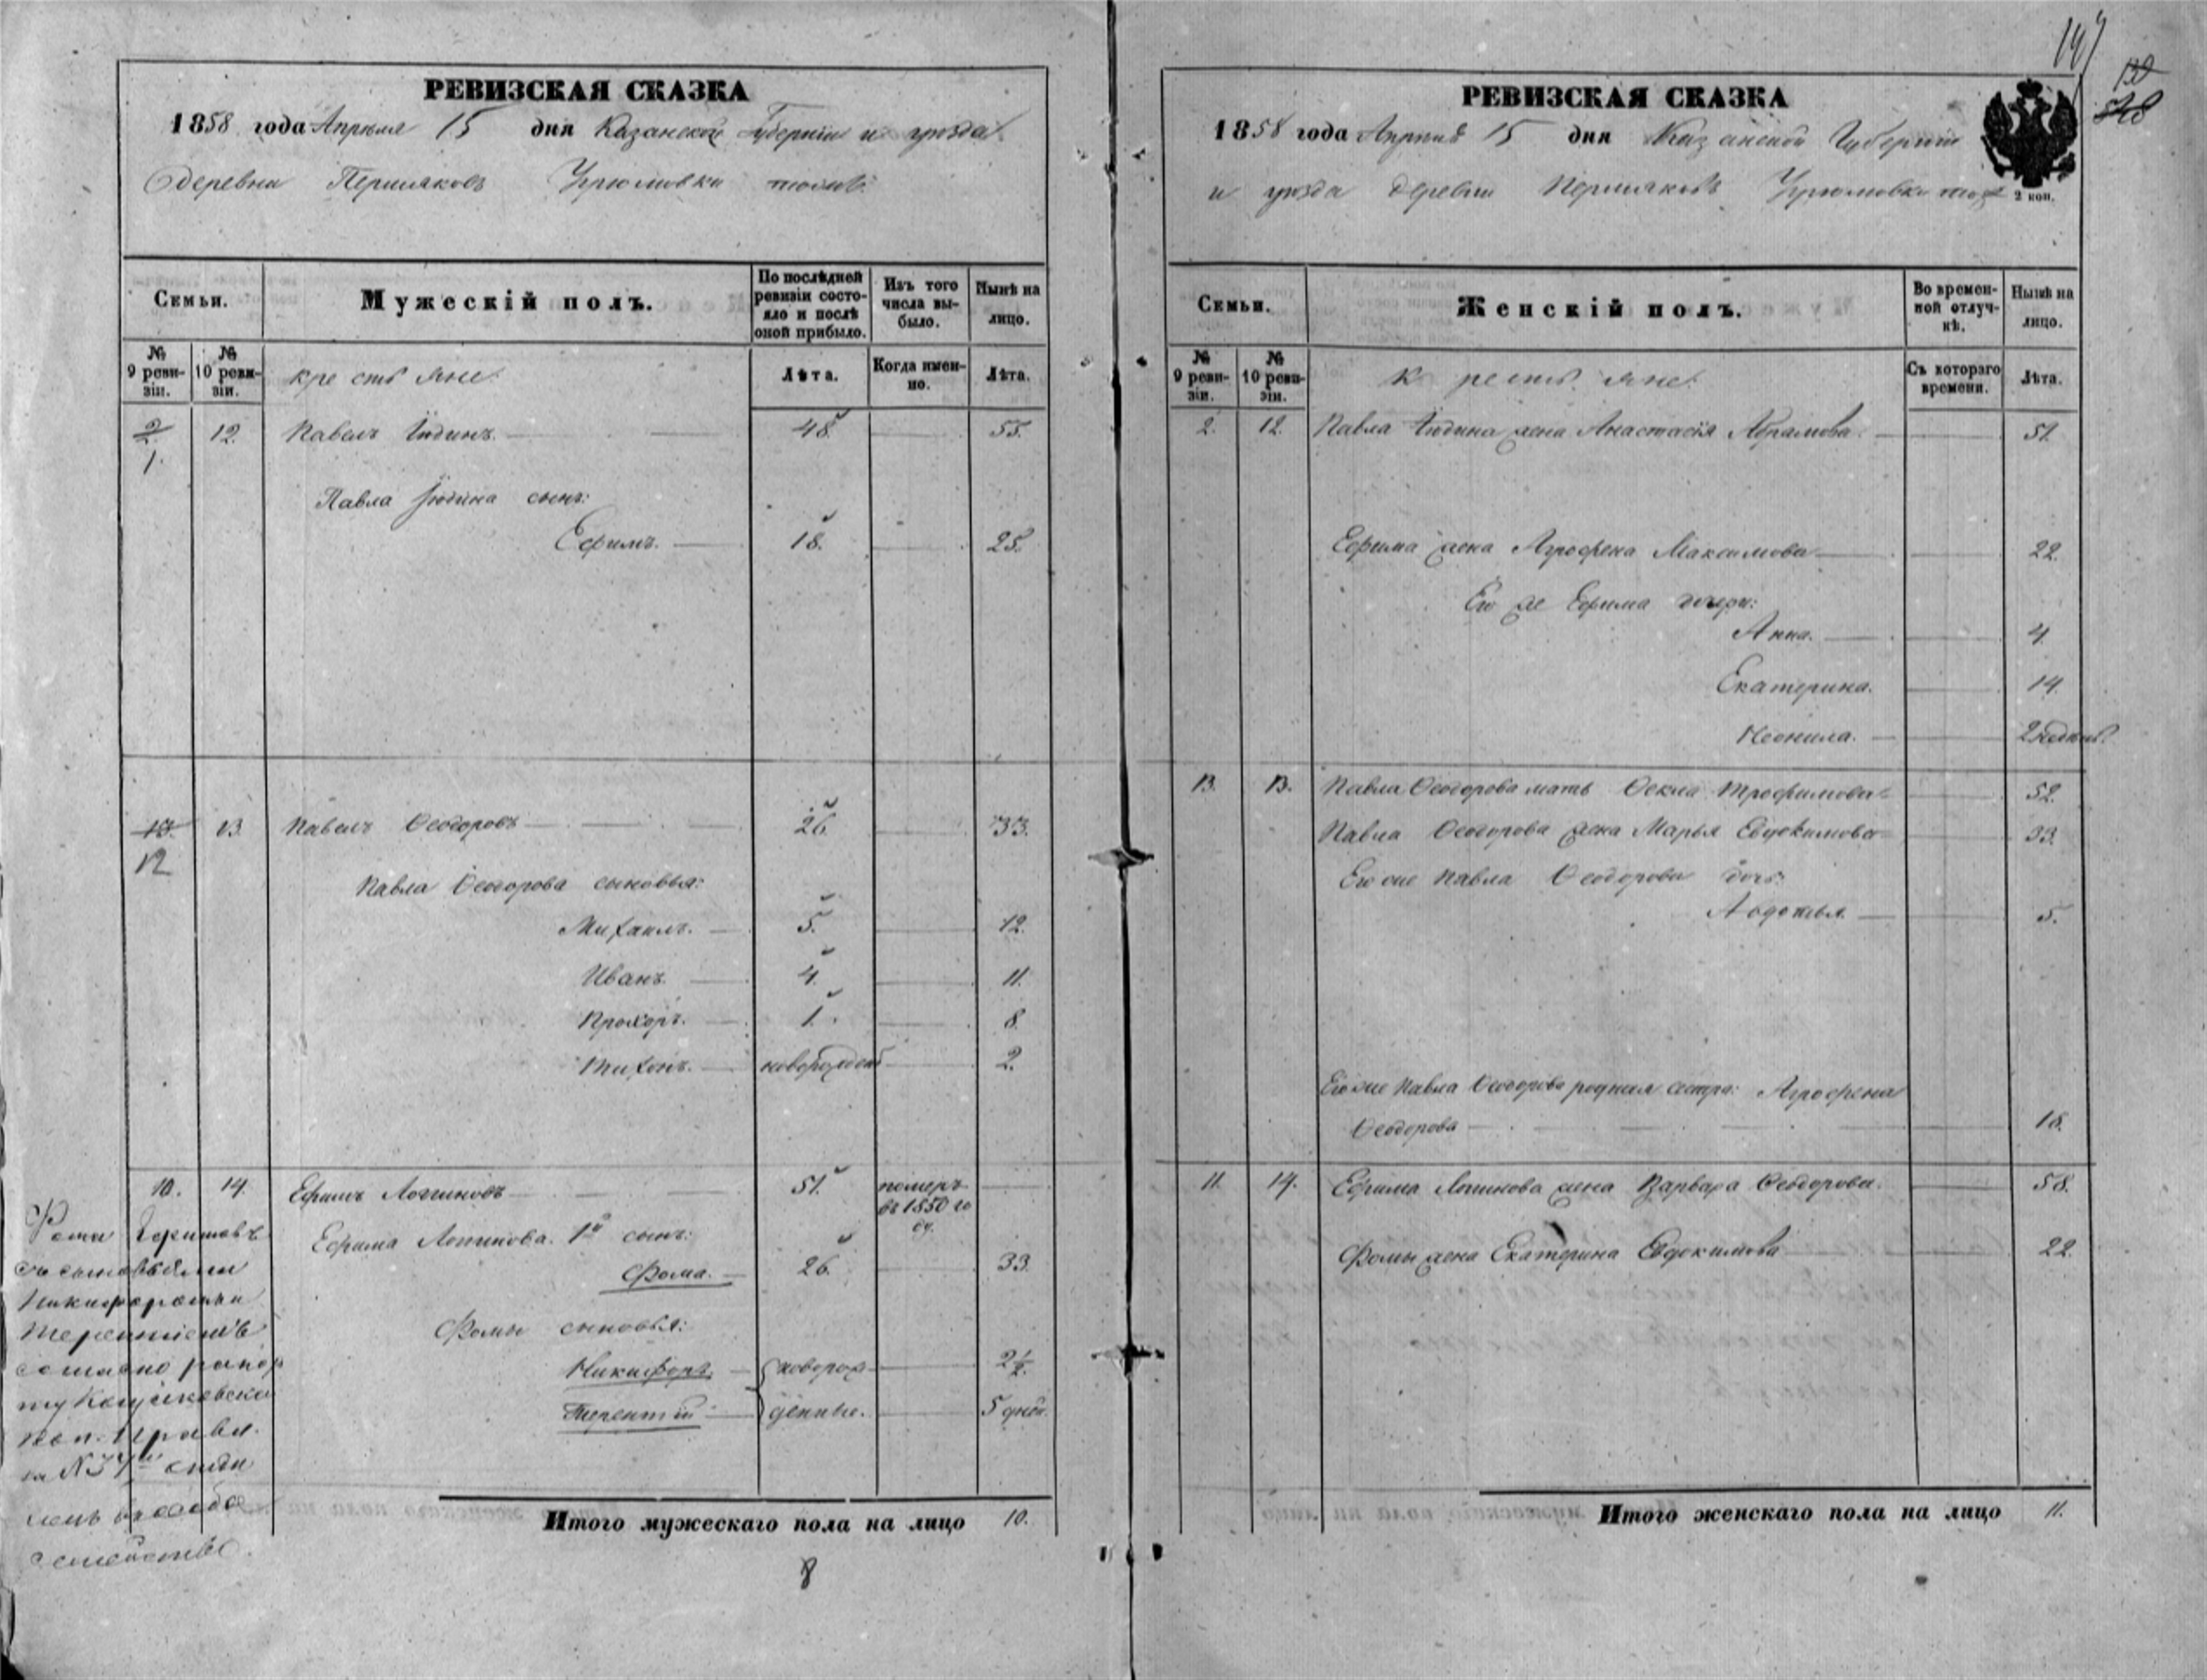 РЕВИЗСКАЯ СКАЗКА
1858 года Апреля 15 дня Казанской Губернии и уезда
деревни Пермяковъ Угрюмовка тожъ
Семьи.
Мужескій полъ.
По послѣдней ревизіи состо-
яло и послѣ
оной прибыло.
Изъ того
числа вы-
было.
Нынѣ на
лицо.
№
9 реви-
зіи.
№
10 реви-
зіи.
крестьяне
Лѣта.
Когда имен-
но.
Лѣта.
2 12. Павелъ Юдинъ. 48. 55.
1.
Павла Юдина сынъ:
Ефимъ. 18. 25.
13. 13 Павелъ Ѳеодоровъ 26. 33.
12
Павла Ѳеодорова сыновья:
Михаилъ. 5. 12.
Иванъ. 4. 11.
Прохоръ. 1. 8.
Тихонъ. новорожденъ 2.
10. 14. Ефимъ Логиновъ 51. померъ
въ 1850 го
ду.
Ефима Логинова 1й сынъ:
Фома. 26. 33.
Фомы сыновья:
Никифоръ. новорож- 2 1/2.
Терентій денные. 5 дней.
Фома Ефимовъ
съ сыновьями
Никифоромъ и
Терентіемъ
согласно рапор
ту
Правл.
за №
въ особое
семейство.
Итого мужескаго пола на лицо 10.
8
147
130
548
РЕВИЗСКАЯ СКАЗКА
1858 года Апреля 15 дня Казанской Губерніи
и уезда деревни Пермяковъ Угрюмовка тожъ
2 коп.
Семьи.
Женскій полъ.
Во времен-
ной отлуч-
кѣ.
Нынѣ на
лицо.
№
9 реви-
зіи.
№
10 реви-
зіи.
крестьяне.
Съ котораго
времени.
Лѣта.
2. 12. Павла Юдина жена Анастасія Абрамова. 51.
Ефима жена Агрофена Максимова 22.
Его же Ефима дочери:
Анна. 4.
Екатерина. 1 1/2.
Неонила. 2 недѣль.
13. 13. Павла Ѳеодорова мать Ѳекла Трофимова 52.
Павла Ѳеодорова жена Марья Евдокимова 33.
Его же Павла Ѳеодорова дочь:
Авдотья. 5.
Его же Павла Ѳеодорова родная сестра: Агрофена
Ѳеодорова 18.
11. 14. Ефима Логинова жена Варвара Ѳеодорова. 58.
Фомы жена Екатерина Евдокимова 22.
Итого женскаго пола на лицо 11.